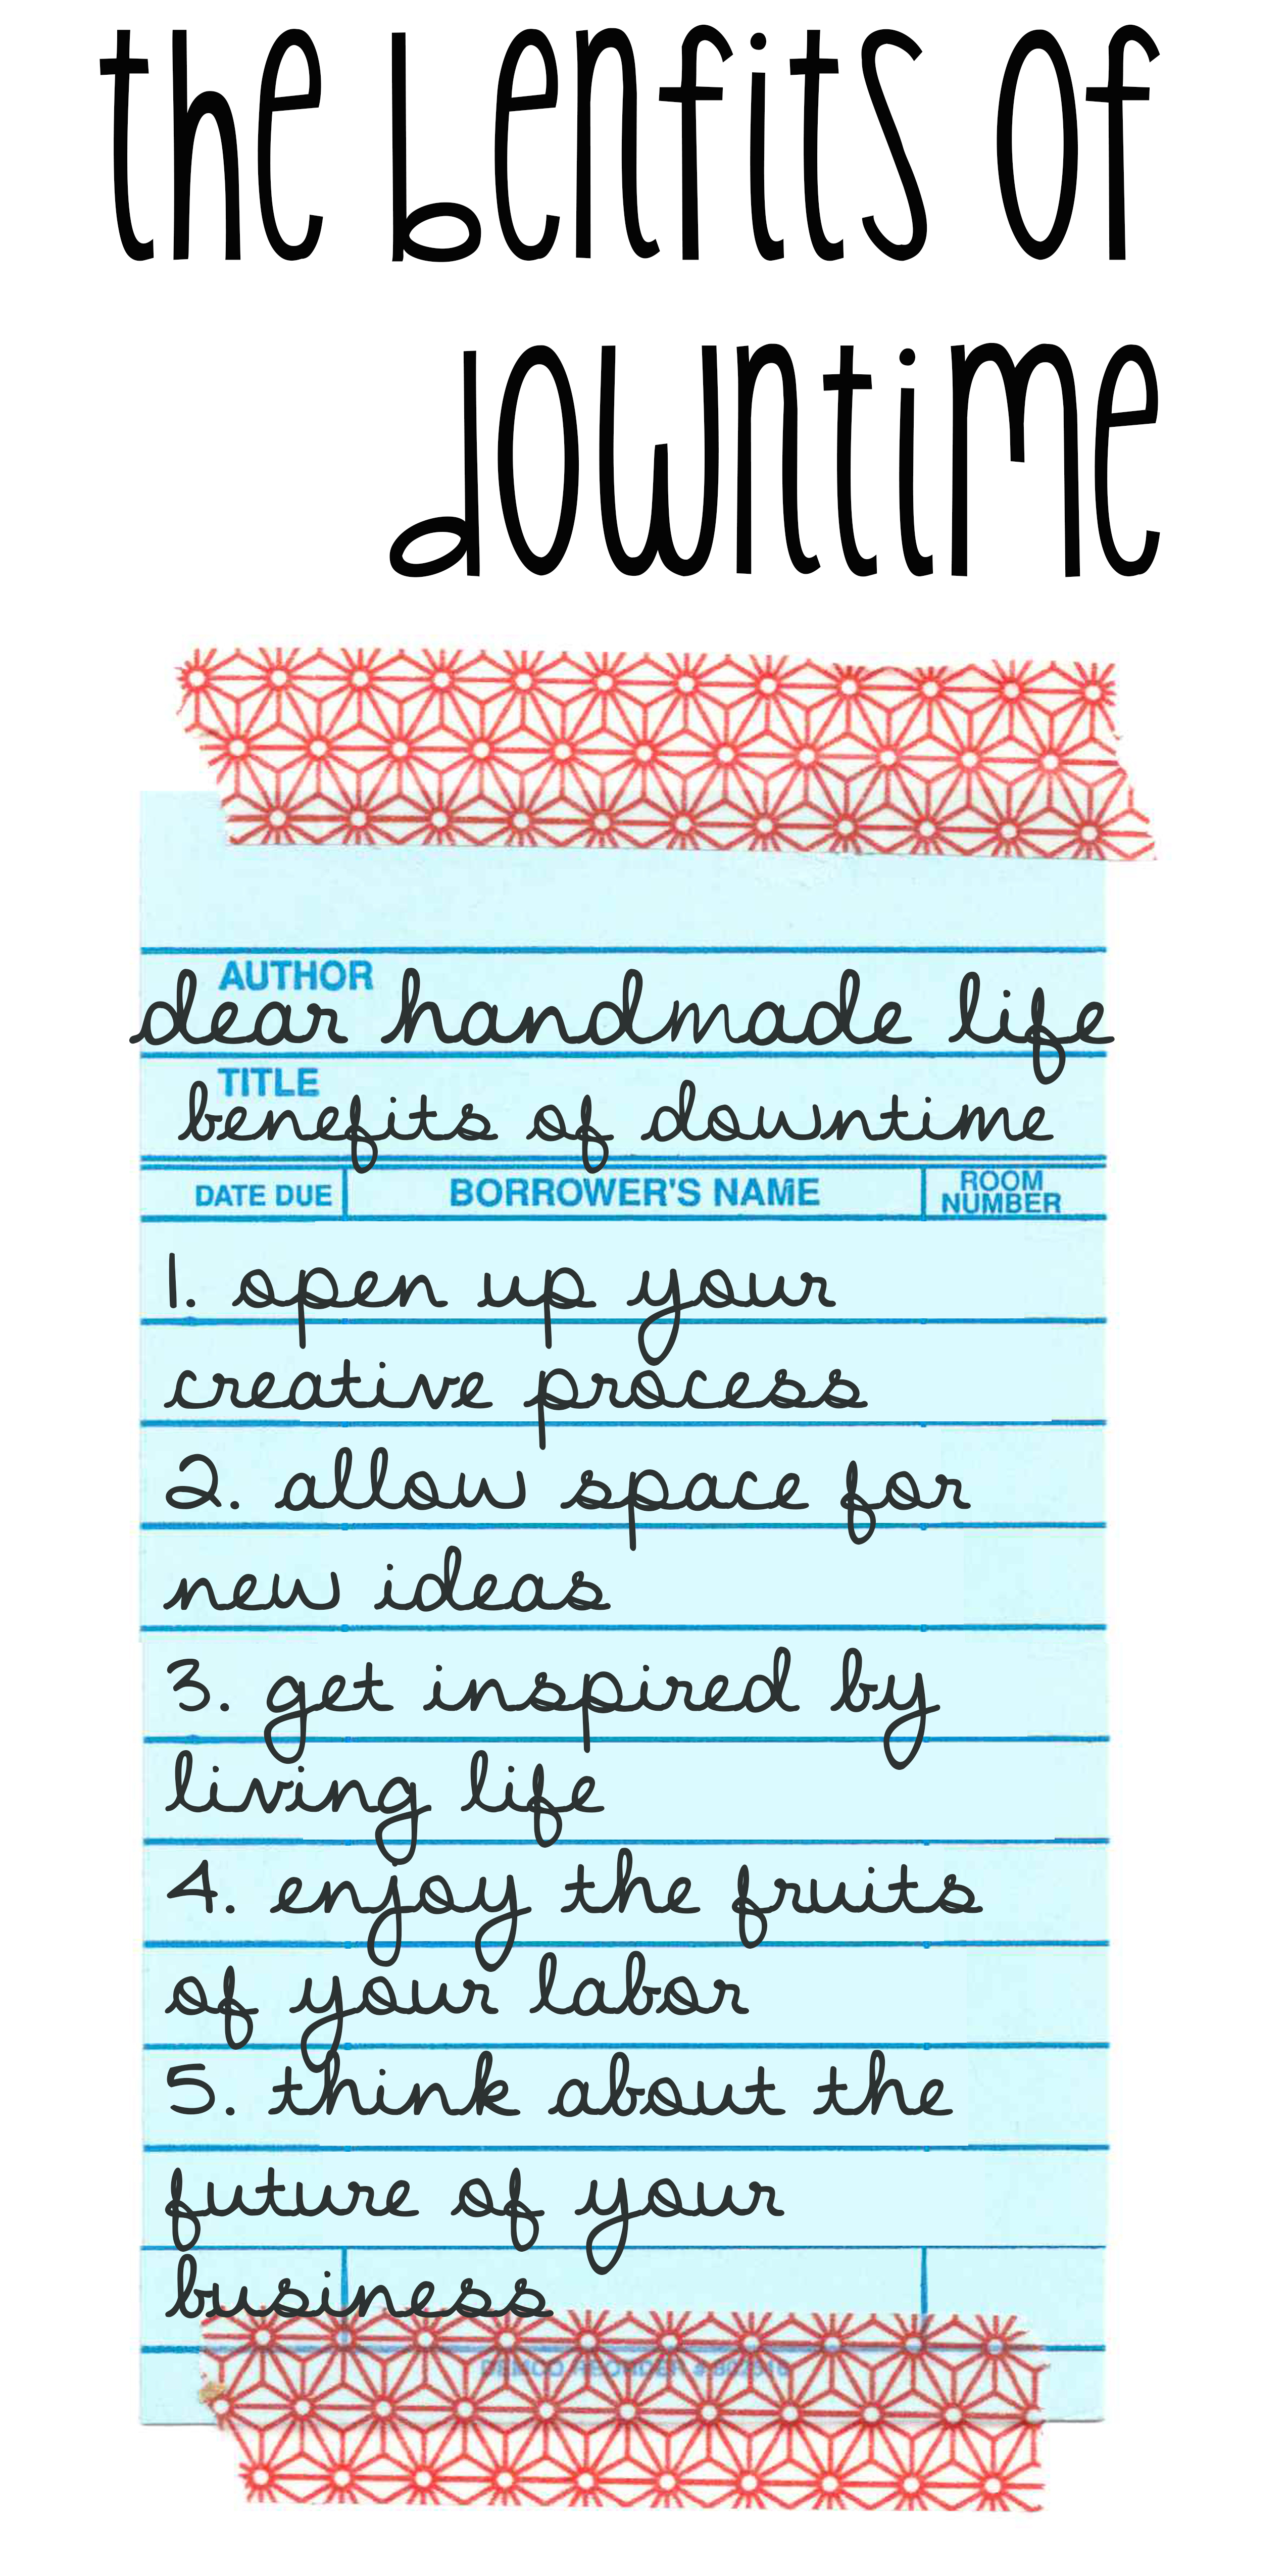 the benfits of
downtime
AUTHOR
dear handmade life
TITLE
benefits of downtime
DATE DUE BORROWER'S NAME ROOM NUMBER
1. open up your
creative process
2. allow space for
new ideas
3. get inspired by
living life
4. enjoy the fruits
of your labor
5. think about the
future of your
business
DEMCO REORDER #